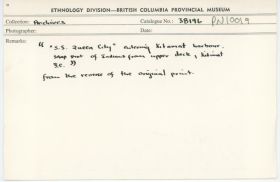 ETHNOLOGY DIVISION—BRITISH COLUMBIA PROVINCIAL MUSEUM
Collection: Archives Catalogue No.: 3819L PN10019
Photographer: Date:
Remarks:
"S.S. Queen City" entering Kitamat harbour.
snap shot of Indians from upper deck, Kitimat
B.C."
from the reverse of the original print.